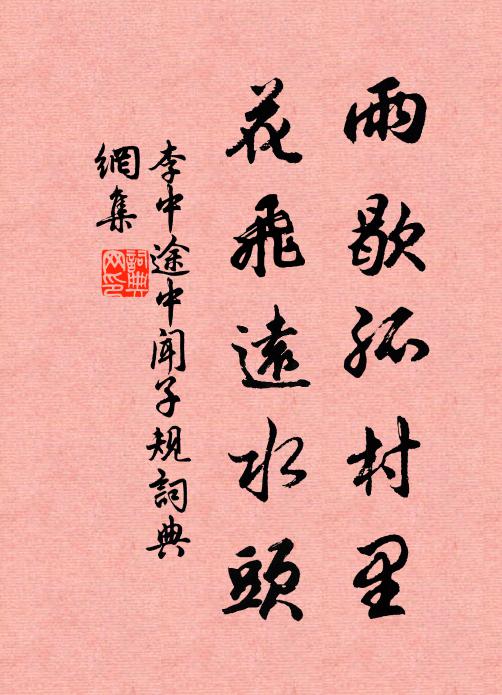 雨歇孤村里
花飛遠水頭
李中途中闻子规詞典
網集
詞典
网印